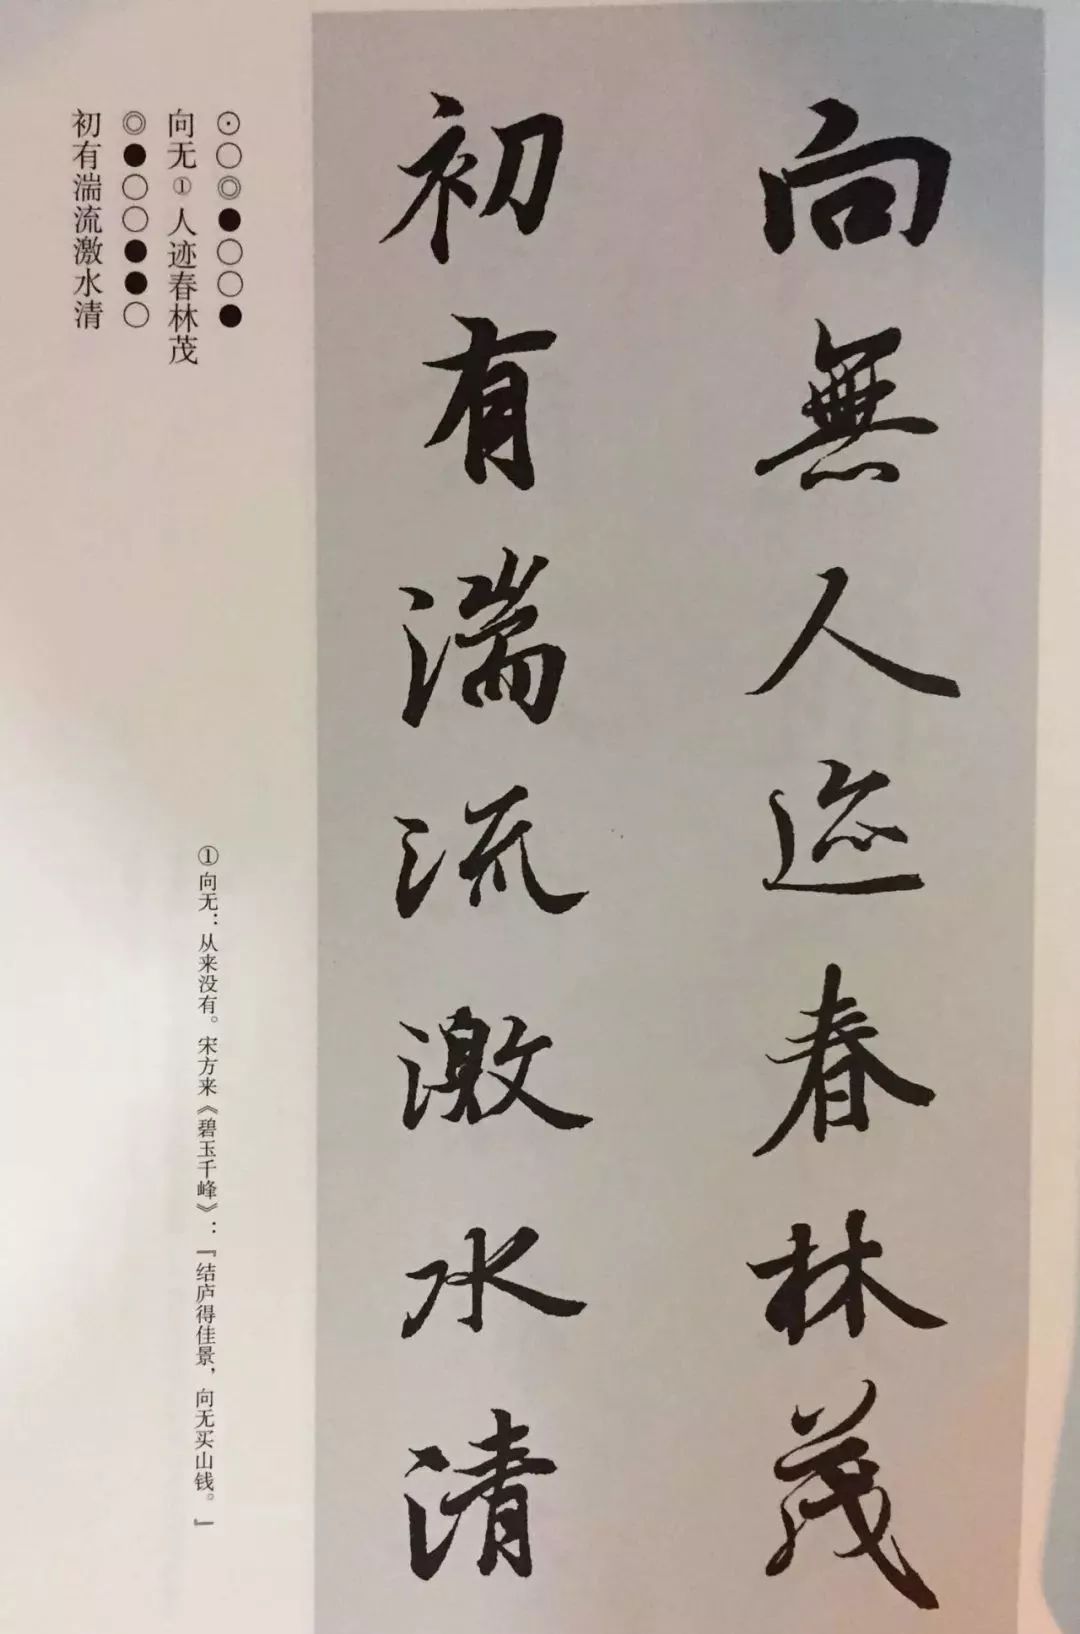 向無人迹春林茂
初有湍流激水清
⊙○◎●○○●
向无①人迹春林茂
◎●○○●●○
初有湍流激水清
①向无：从来没有。宋方来《碧玉千峰》：「结庐得佳景，向无买山钱。」